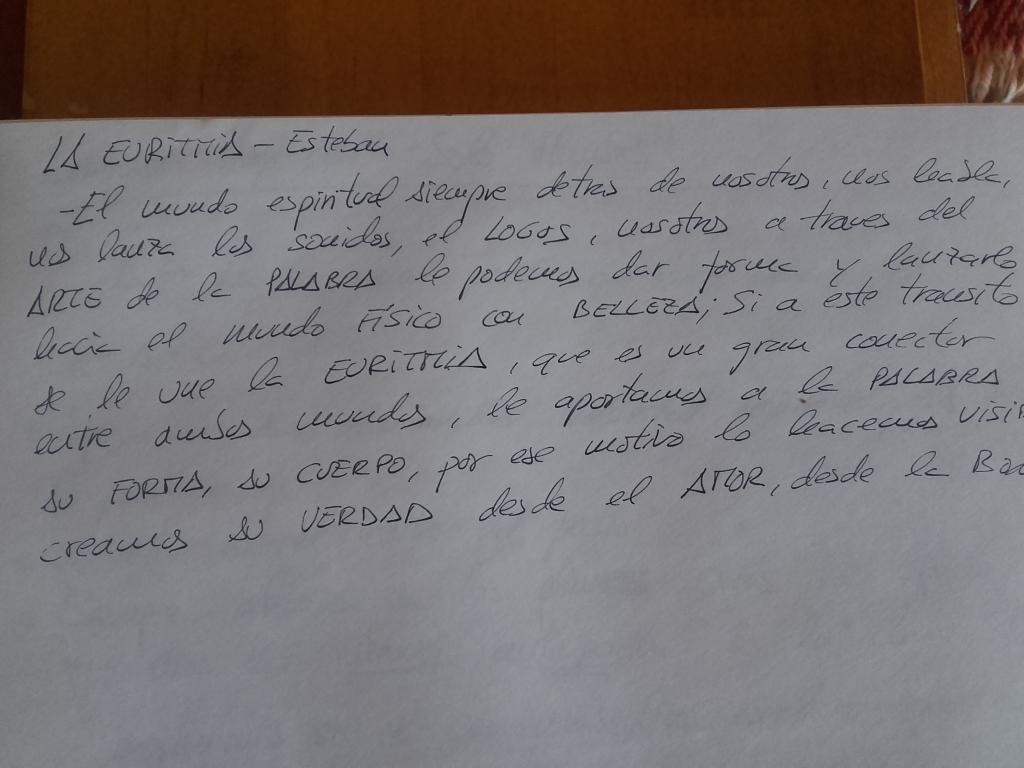 LA EURITMIA - Esteban
-El mundo espiritual siempre detras de nosotros, nos habla,
nos lanza los sonidos, el LOGOS, nosotros a traves del
ARTE de la PALABRA le podemos dar forma y lanzarlo
hacia el mundo FÍSICO con BELLEZA; Si a este transito
se le une la EURITMIA, que es un gran conector
entre ambos mundos, le aportamos a la PALABRA
su FORMA, su CUERPO, por ese motivo lo hacemos
creamos su VERDAD desde el AMOR, desde la